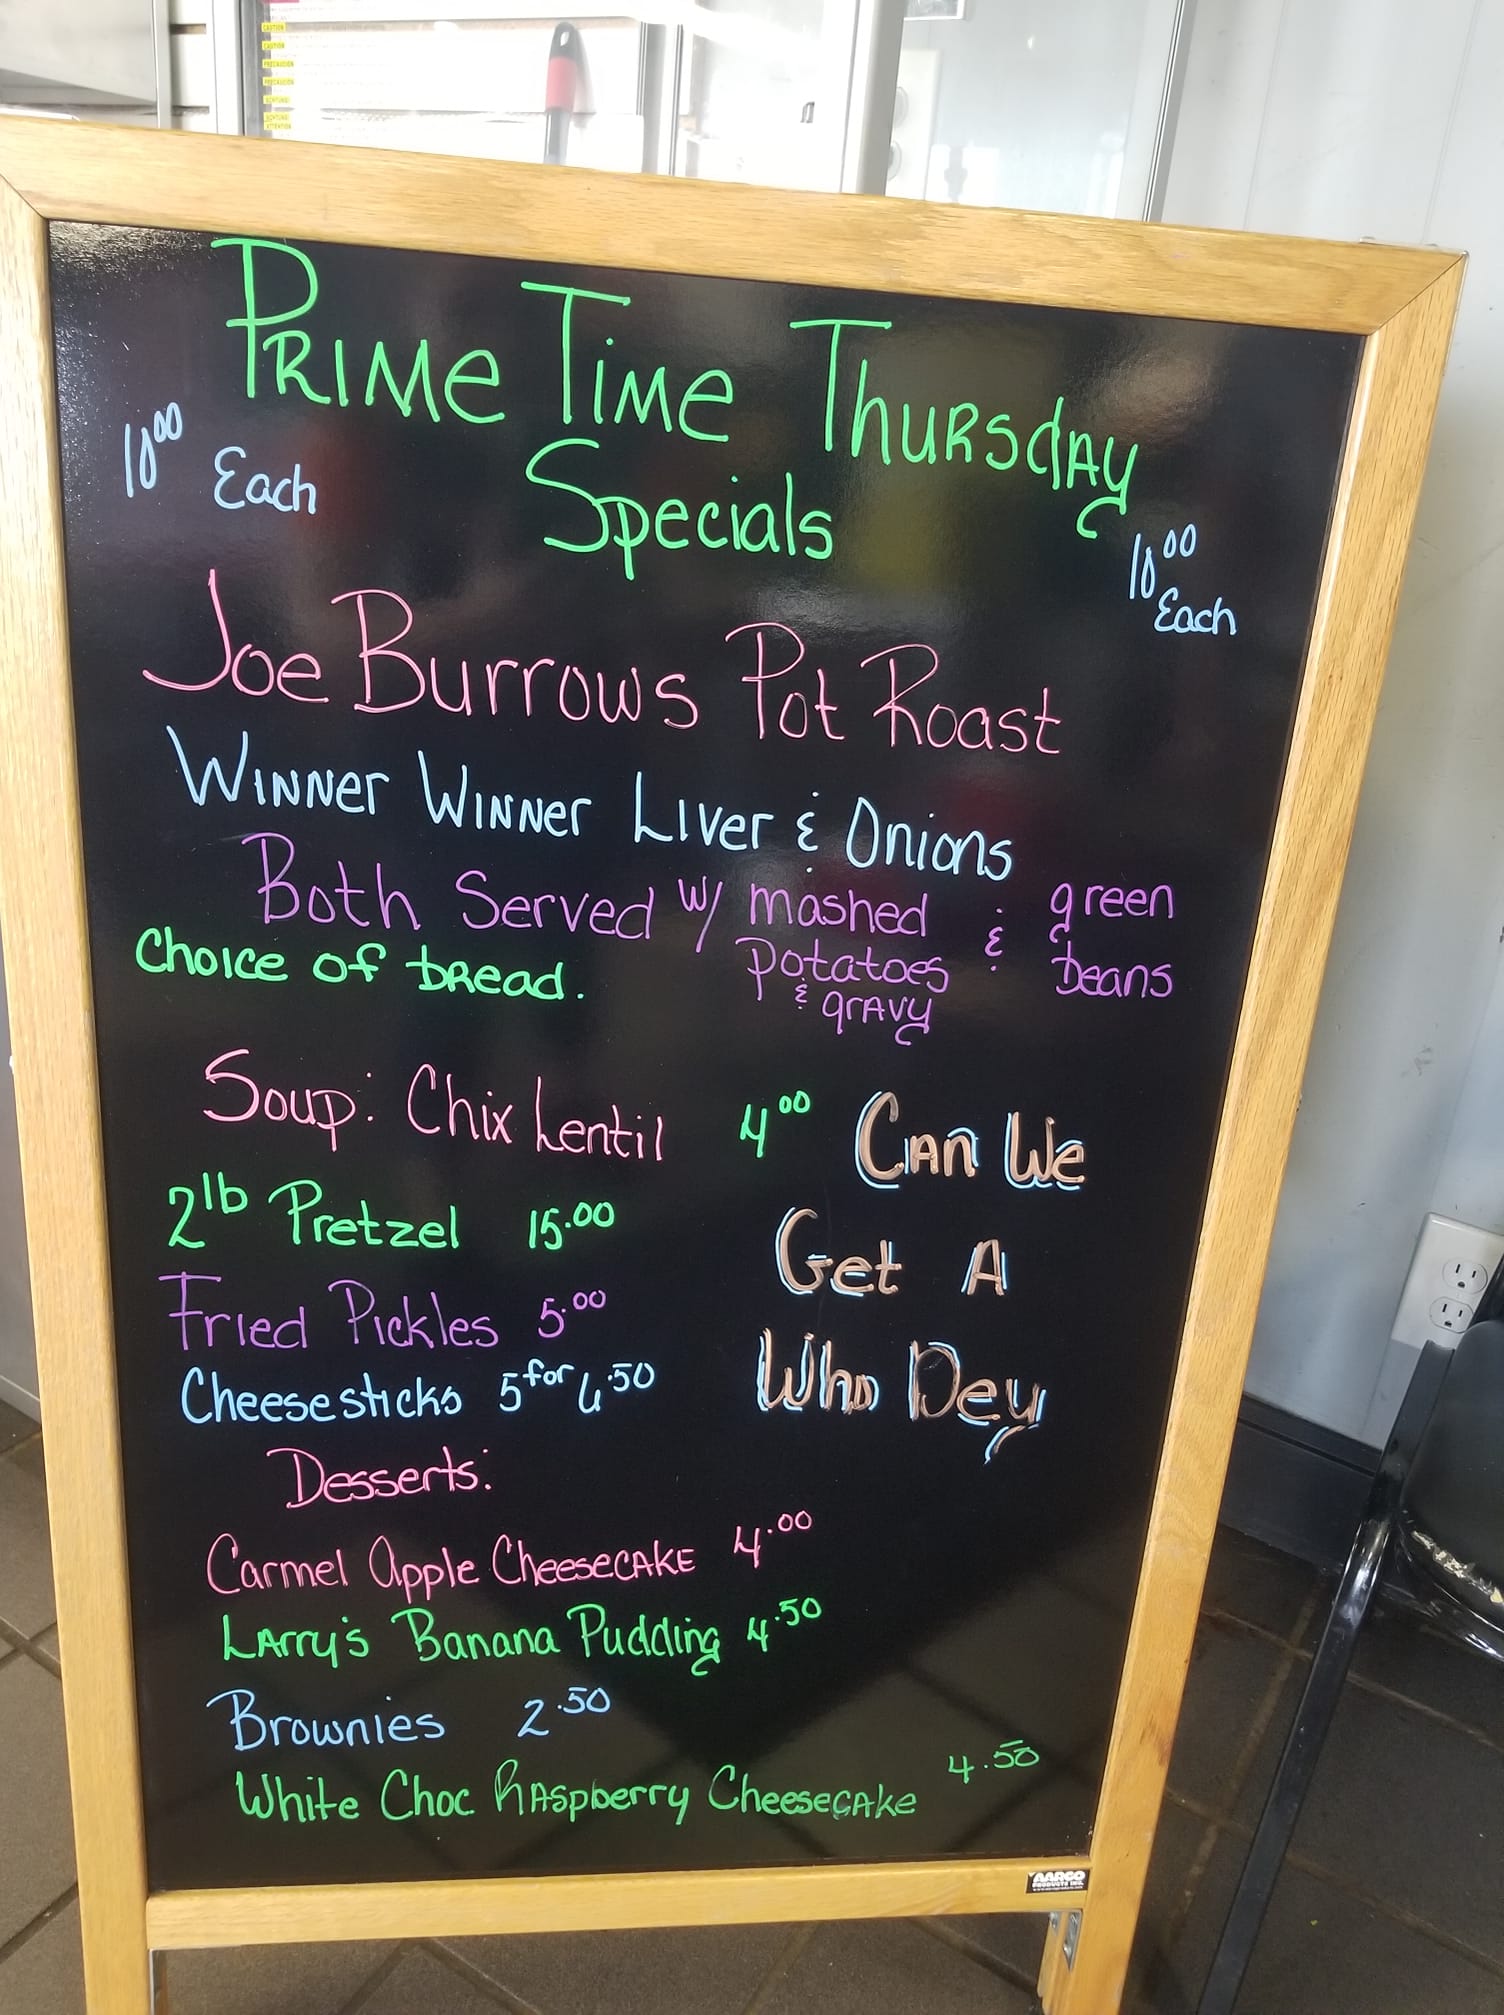 CAUTION
CAUTION
PRECAUCIÓN
PRECAUCIÓN
ACHTUNG!
ACHTUNG!
ATTENTION
PRIME TIME THURSDAY
Specials
10.00 Each
10.00 Each
Joe Burrows Pot Roast
WINNer WINNer LIVer & Onions
Both Served w/ mashed potatoes & gravy & green beans
Choice of bread.
Soup: Chix Lentil 4.00
2lb Pretzel 15.00
Fried Pickles 5.00
Cheesesticks 5 for 6.50
Can We
Get A
Who Dey
Desserts:
Carmel Apple CheesecAKE 4.00
LArry's Banana Pudding 4.50
Brownies 2.50
White Choc RAspberry CheesecAke 4.50
AARCO
PRODUCTS INC.